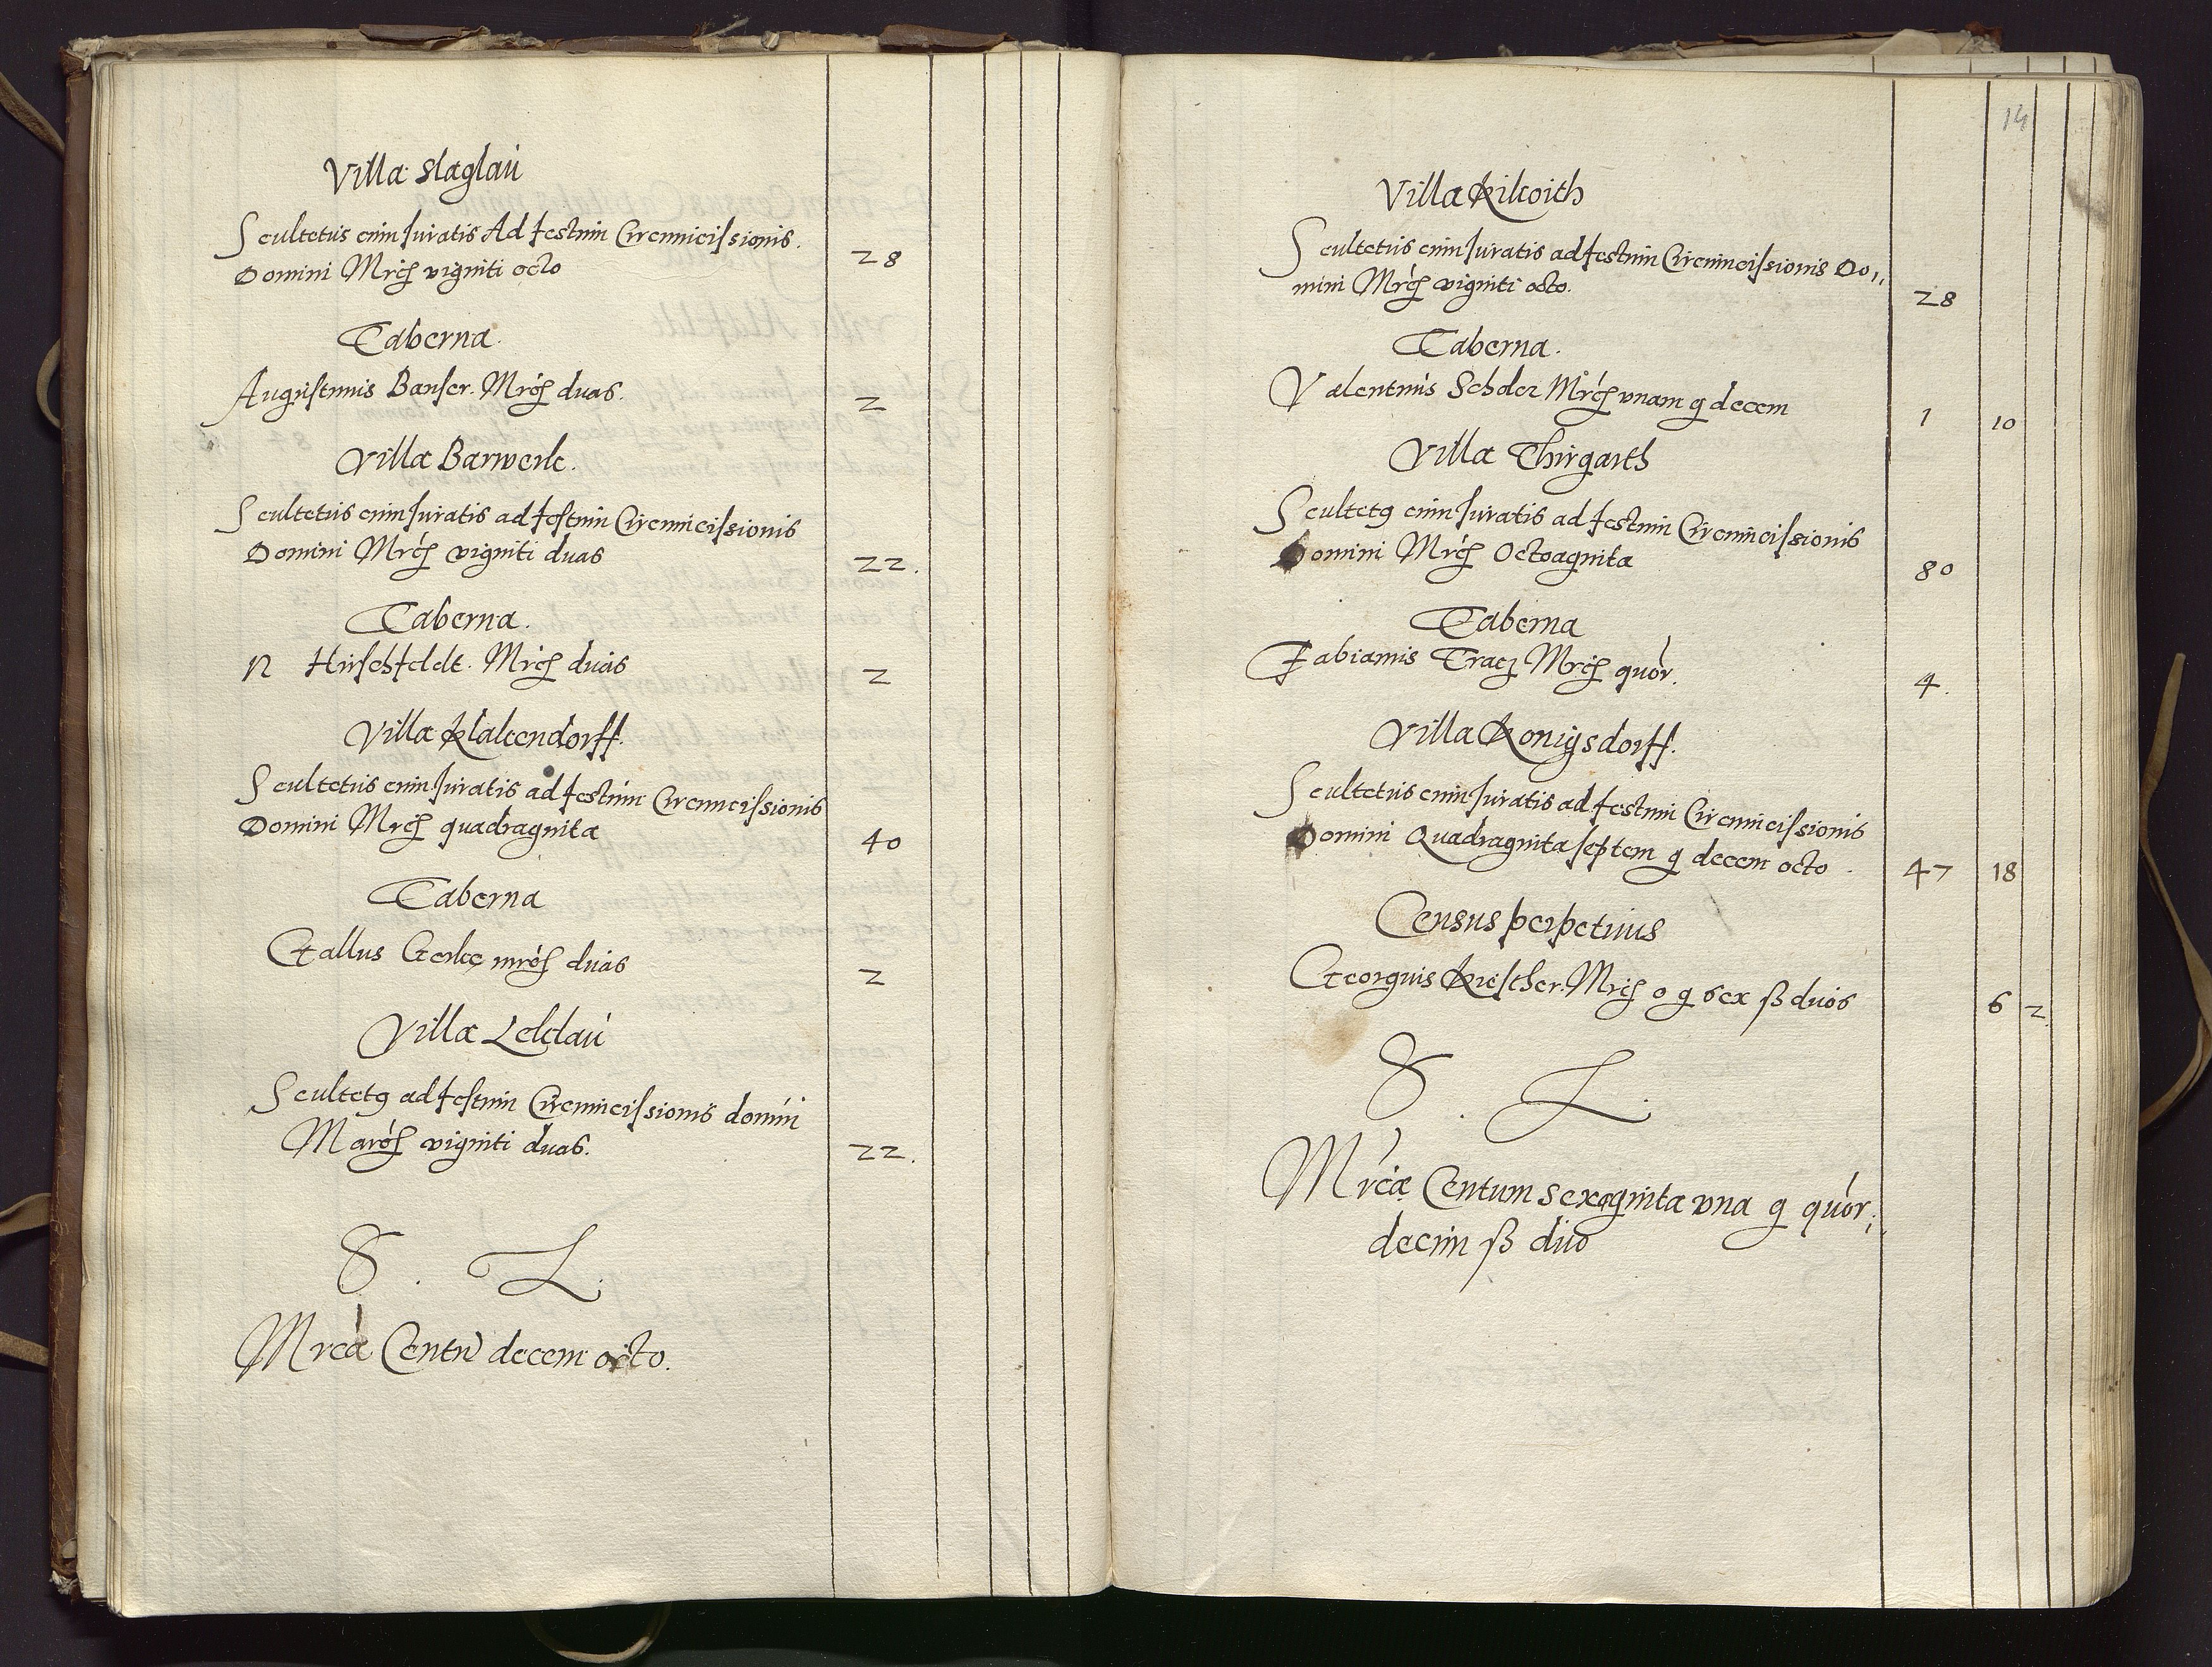 Villa Slaglau
Scultetus cum Juratis Ad festum Circumcissionis.
Domini Mrc͠ viginti octo
28
Taberna.
Augustinus Banser. Mrc͠ duas.
2
Villa Barwerle.
Scultetus cum Juratis ad festum Circumcissionis
Domini Mrc͠ viginti duas
22.
Taberna.
N Hirschfeldt. Mrc͠ duas
2
Villa Klakendorff.
Scultetus cum Juratis ad festum Circumcissionis
Domini Mrc͠ quadraginta
40
Taberna
Gallus Gerke mrc͠ duas
2
Villa Leklau
Scultetg ad festum Circumcissionis domini
Marc͠ viginti duas.
22.
S. L.
Mrca Centu͠ decem octo.
14
Villa Kilkoith
Scultetus cum Juratis ad festum Circumcissionis Do,,
mini Mrc͠ viginti octo.
28
Taberna.
Valentinus Schder Mrc͠ vnam g decem
1 10
Villa Thirgarth
Scultetg cum Juratis ad festum Circumcissionis
Domini Mrc͠ Octoaginta
80
Taberna
Fabianus Tracz Mrc͠ quor.
4.
Villa Konigsdorff.
Scultetus cum Juratis ad festum Circumcissionis
Domini Quadraginta septem g decem octo.
47 18
Census perpetuus
Georgius Kriesther. Mrc͠ 0 g sex ß duos
6 2.
S. L.
Mrcæ Centum sexaginta vna g quor,,
decim ß duo